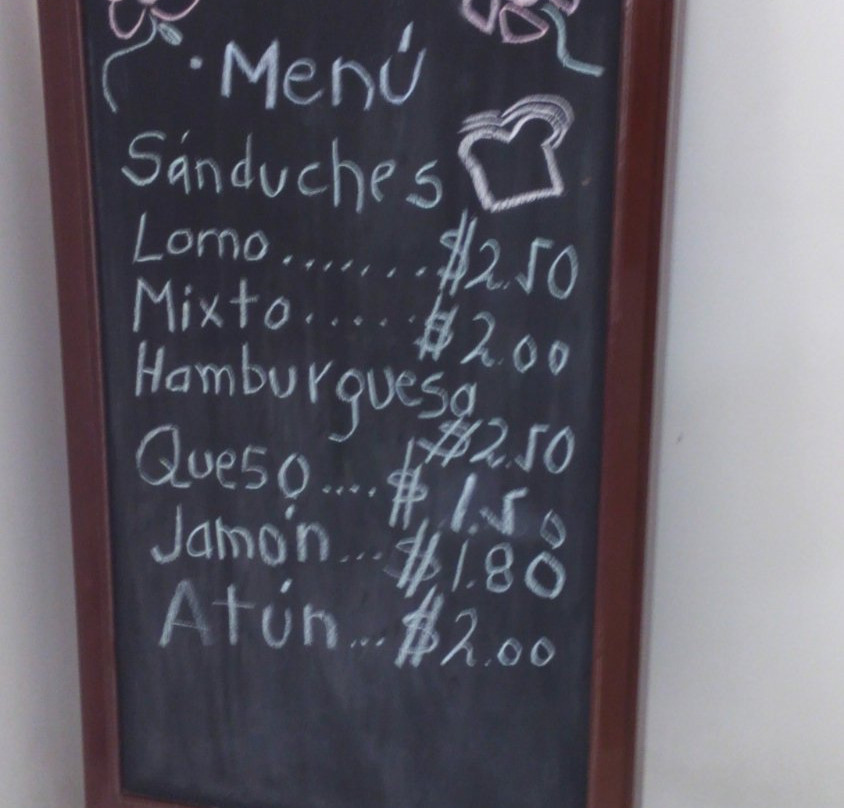 · Menú
Sánduches
Lomo........$2.50
Mixto......$2.00
Hamburguesa
$2.50
Queso....$1.50
Jamón...$1.80
Atún...$2.00